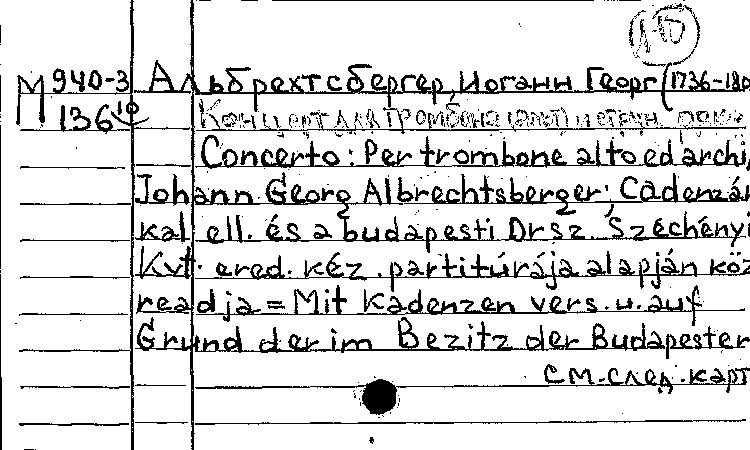 М 940-3 Альбрехтсбергер, Иоганн Георг (1736-180
136 10 Концерт для тромбона (альт) и струн.
Concerto: Per trombone alto ed archi,
Johann Georg Albrechtsberger; Cadenzár
kal ell. és a budapesti Orsz. Széchényi
Kvt. ered. kéz. partitúrája alapján köz
readja = Mit Kadenzen vers. u. auf
Grund der im Bezitz der Budapester
см. след. карт